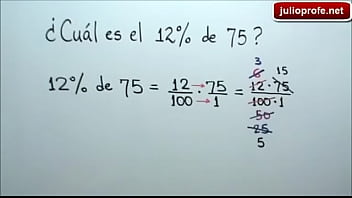 julioprofe.net
¿Cuál es el 12% de 75?
12% de 75 = 12/100 · 75/1 = 12 · 75/100 · 1
3
6
15
50
25
5